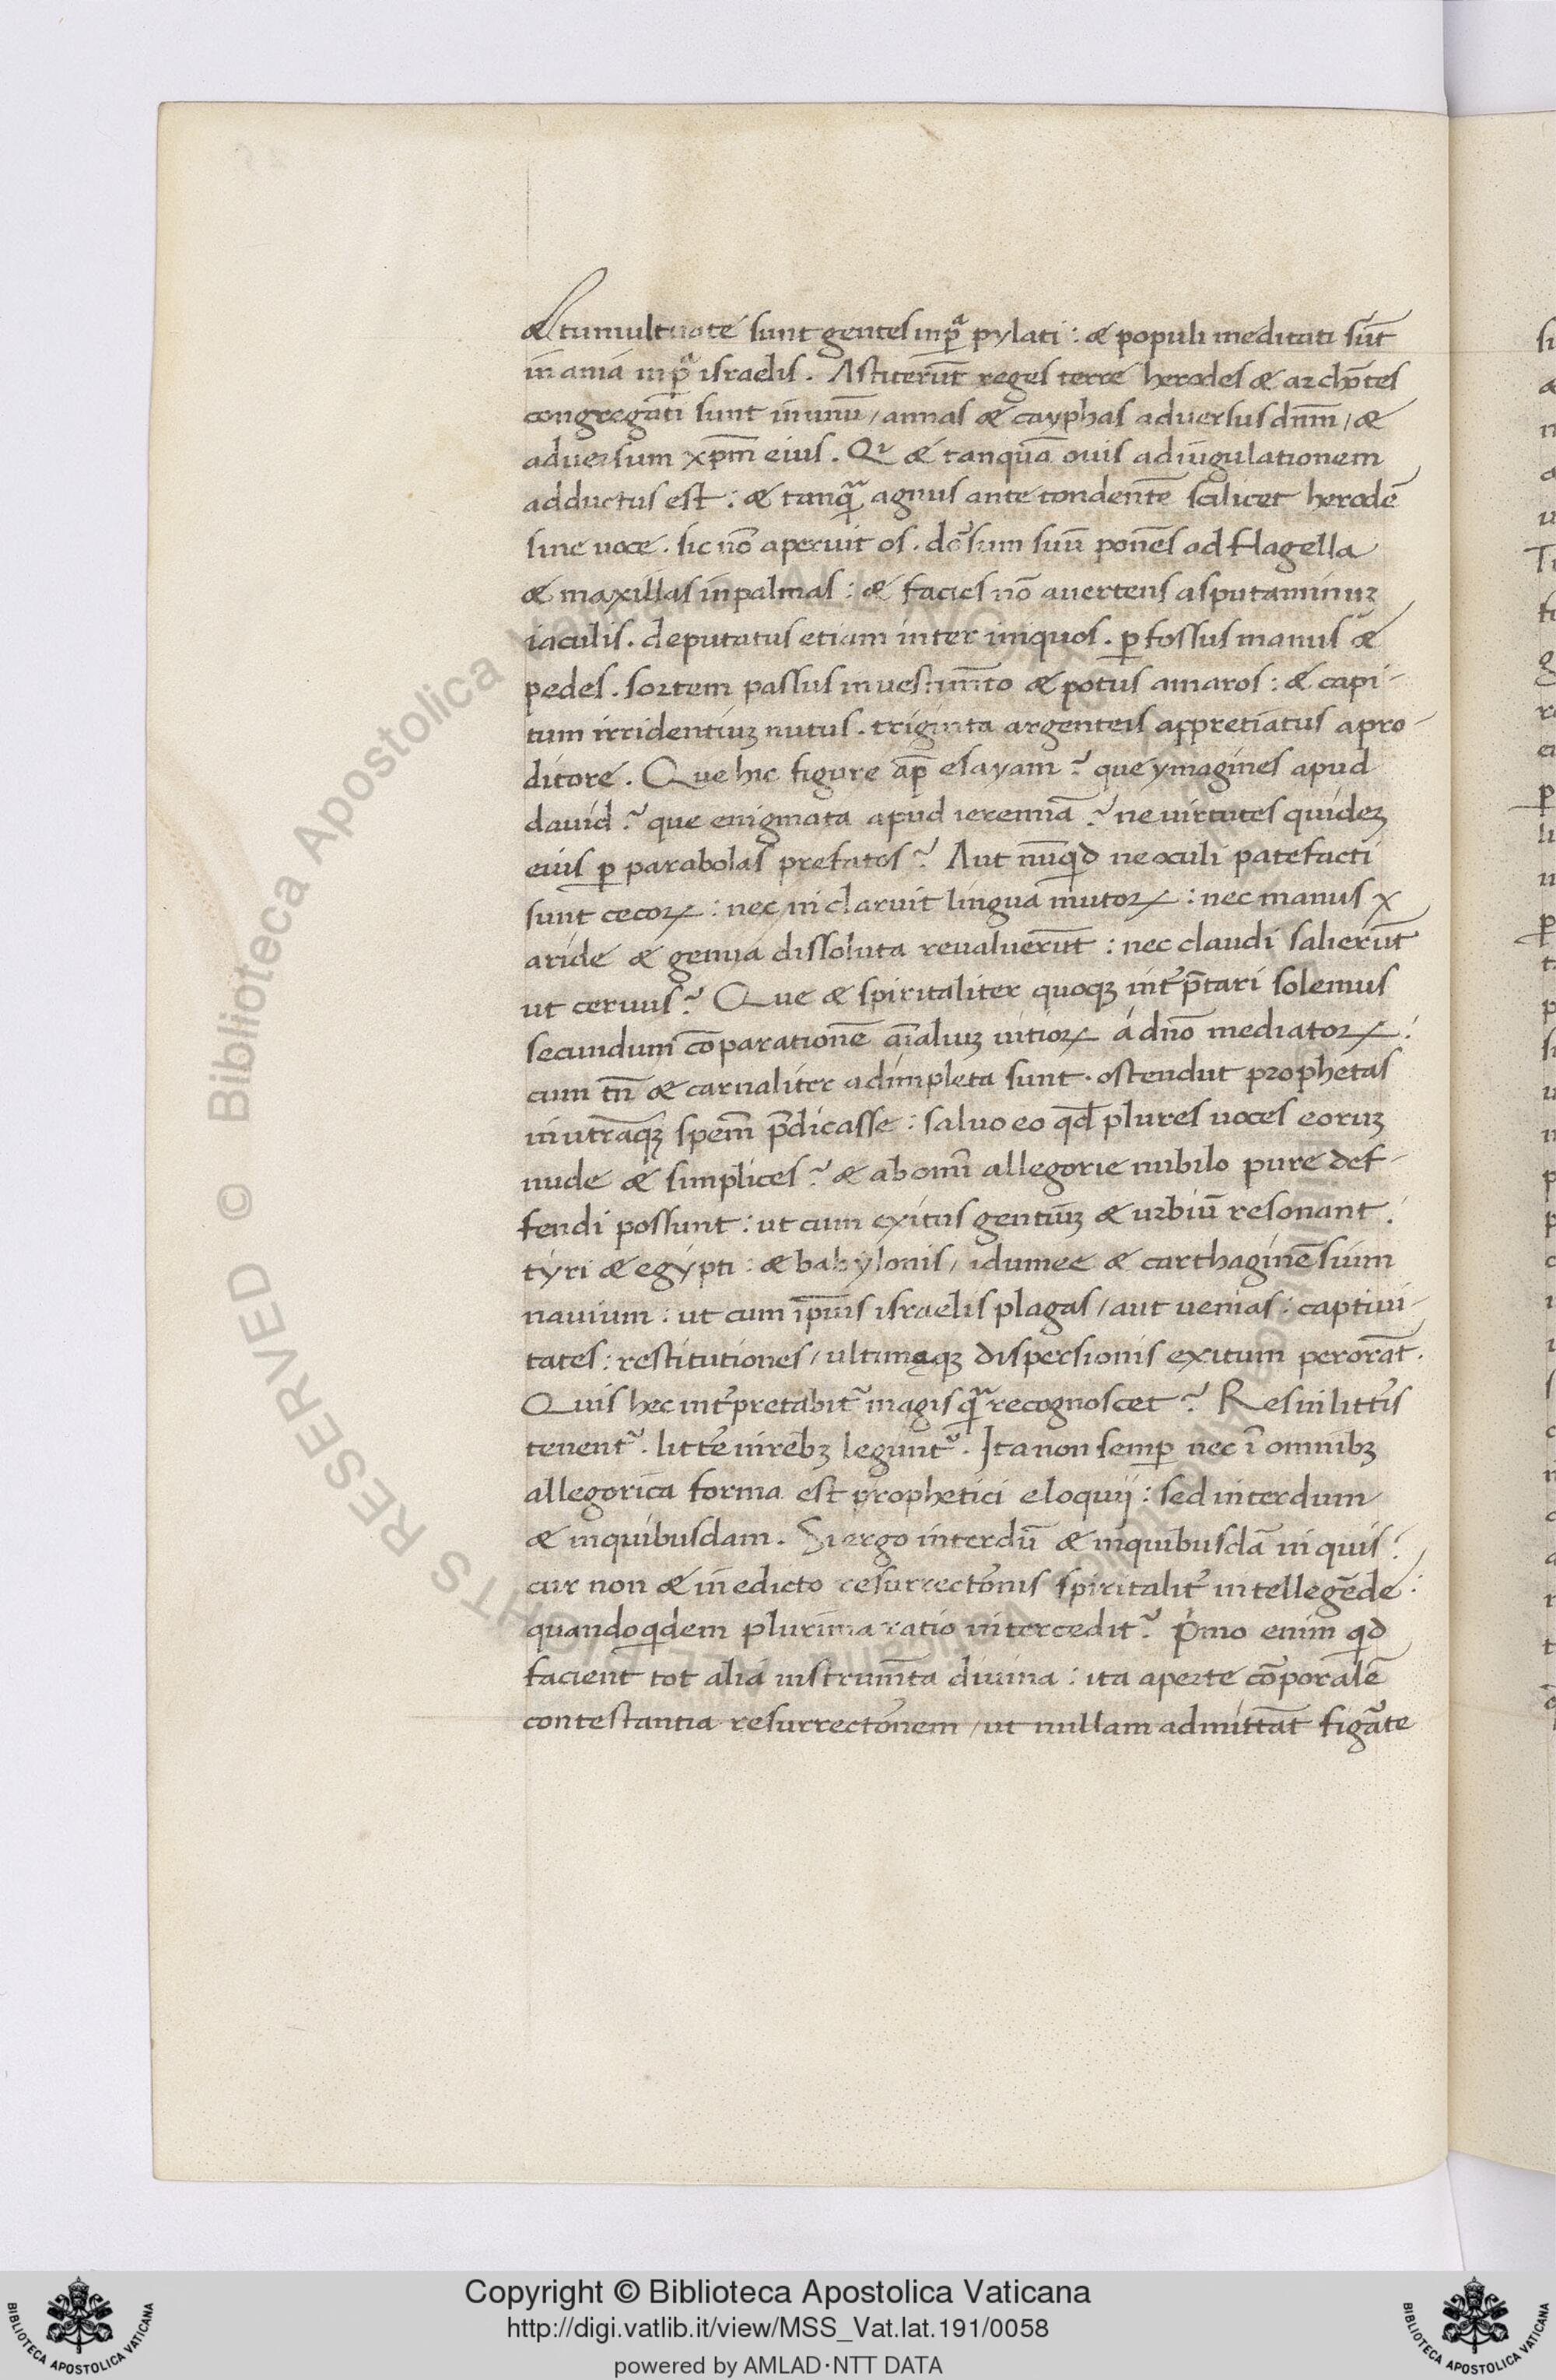 & tumultuate sunt gentes inp̄ᵃ pylati : & populi meditati sūt
inania inp̄ᵃ israelis . Astiterūt reges terre herodes & archōtes
congregati sunt inunū / annas & cayphas adversus dnm̄ / &
adversum xp̄m eius . Qr & tanquā ouis adiugulationem
adductus est : & tanqᵃ̄ agnus ante tondentē scilicet herodē
sine uoce . sic nō aperuit os . doʳsum suū ponēs ad flagella
& maxillas inpalmas : & facies nō auertens asputaminuꝫ
iaculis . deputatus etiam inter iniquos . ꝑfossus manus &
pedes . sortem passus inuestimn̄to & potus amaros : & capi-
tum irridentiuꝫ nutus . triginta argenteis appretiatus apro-
ditore . Que hic figure ap̄ esayam ? que ymagines apud
dauid ? que enigmata apud ieremiā ? ne uirtutes quideꝫ
eius ꝑ parabolas prefatos ? Aut nūqd̄ ne oculi patefacti
sunt cecoꝝ : nec inclaruit lingua mutoꝝ : nec manus
aride & genua dissoluta revaluerūt : nec claudi salierūt
ut ceruus ? Que & spiritaliter quoqꝫ int̄p̄tari solemus
secundum cōparationē aīaliuꝫ uitioꝝ a dn̄o mediatoꝝ :
cum tn̄ & carnaliter adimpleta sunt . ostendut prophetas
inutrāqꝫ spem̄ p̄dicasse : saluo eo qd̄ plures uoces eoruꝫ
nude & simplices ? & abomī allegorie nubilo pure def-
fendi possunt : ut cum exitus gentiuꝫ & urbiū resonant .
tyri & egypti : & babylonis / idumee & carthaginēsium
nauium : ut cum ip̄ius israelis plagas / aut uenias : captiui-
tates : restitutiones / ultimęqꝫ dispersionis exitum perorāt .
Quis hec int̄pretabit᷑ magis qᵃ̄ recognoscet ? Res in litt̄is
tenent᷑ . litt̄e inrebꝫ legunt᷑ . Ita non semꝑ nec ī omnibꝫ
allegorica forma est prophetici eloquij : sed interdum
& inquibusdam . Si ergo interdū & inquibusdā inquis :
cur non & in edicto resurrectōnis spiritalit̄ intellegēde :
quandoqdem plurima ratio intercedit ? Pʳmo enim qd̄
facient tot alia instrumn̄ta diuina : ita aperte cōporalē
contestantia resurrectōnem / ut nullam admittāt figᵃte
Copyright © Biblioteca Apostolica Vaticana
http://digi.vatlib.it/view/MSS_Vat.lat.191/0058
powered by AMLAD·NTT DATA